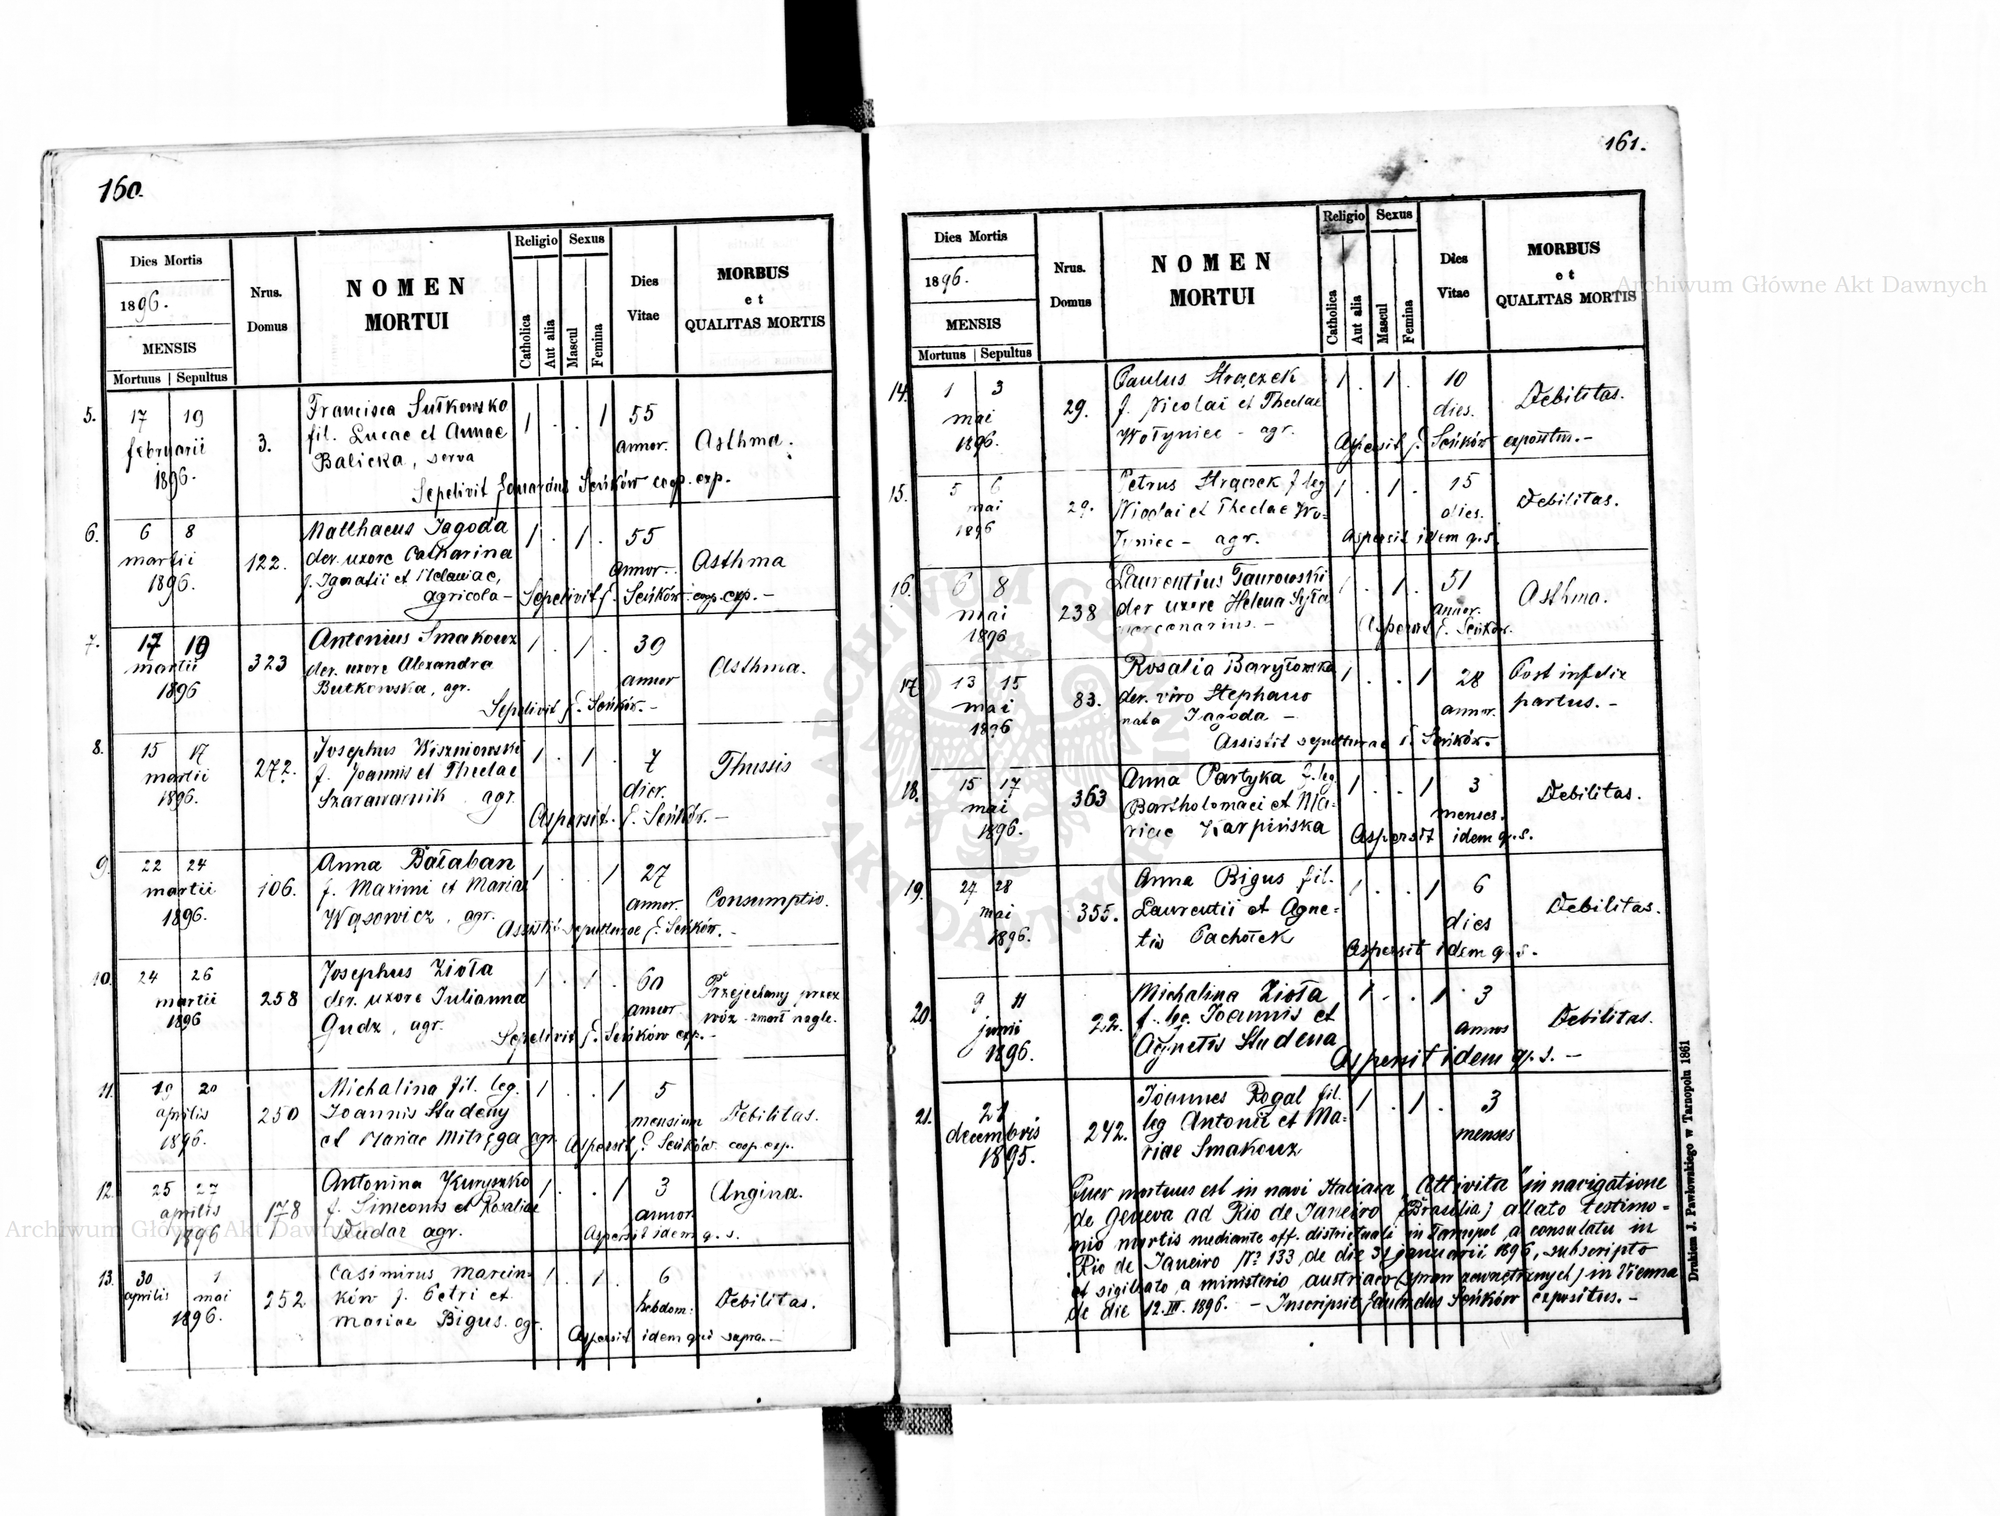 160.
Dies Mortis
1896.
MENSIS
Mortuus | Sepultus
Nrus. Domus
NOMEN MORTUI
Religio
Catholica
Aut alia
Sexus
Mascul
Femina
Dies Vitae
MORBUS
et
QUALITAS MORTIS
5. 17 19 februarii 1896. 3.
Francisca Sułkowska
fil. Lucae et Annae
Balicka, serva
1 . . 1 55 annor. Asthma.
Sepelivit Eduardus Seńków coop. exp.
6. 6 8 martii 1896. 122.
Matthaeus Jagoda
der. uxore Catharina
f. Ignatii et Melaniae,
agricola -
1 . 1 . 55 annor. Asthma
Sepelivit E. Seńków coop. exp. -
7. 17 19 martii 1896 323
Antonius Smakouz
der. uxore Alexandra
Butkowska, agr.
1 . 1 . 39 annor Asthma.
Sepelivit E. Seńków. -
8. 15 17 martii 1896. 272.
Josephus Wiszniowski
f. Joannis et Theclae
Szarawarnik agr.
1 . 1 . 7 dier. Thussis
Aspersit. E. Seńków. -
9. 22 24 martii 1896. 106.
Anna Bałaban
f. Maximi et Mariae
Wąsowicz, agr.
1 . . 1 27 annor. Consumptio.
Assistit sepulturae E. Seńków. -
10. 24 26 martii 1896 258
Josephus Zioła
der. uxore Julianna
Gudz, agr.
1 . 1 . 60 annor Przejechany przez
wóz - zmarł nagle.
Sepelivit E. Seńków exp. -
11. 19 20 aprilis 1896. 250
Michalina fil. leg.
Joannis Studeny
et Mariae Mitręga agr.
1 . . 1 5 mensium Debilitas.
Aspersit E. Seńków coop. exp.
12. 25 27 aprilis 1896 178
Antonina
f. Simeonis et Rosaliae
Dudar agr.
1 . . 1 3 annor. Angina.
Aspersit idem q. s.
13. 30 aprilis 1 mai 1896. 252
Casimirus Marcin-
ków f. Petri et
Mariae Bigus. agr.
1 . 1 . 6 hebdom: Debilitas.
Aspersit idem qui supra. -
161.
Dies Mortis
1896.
MENSIS
Mortuus | Sepultus
Nrus. Domus
NOMEN MORTUI
Religio
Catholica
Aut alia
Sexus
Mascul
Femina
Dies Vitae
MORBUS
et
QUALITAS MORTIS
14. 1 3 mai 1896. 29.
Paulus Strączek
f. Nicolai et Theclae
Wołyniec - agr.
1 . 1 . 10 dies. Debilitas.
Aspersit E. Seńków expositus. -
15. 5 6 mai 1896 29.
Petrus Strączek f. leg
Nicolai et Theclae Wo-
łyniec - agr.
1 . 1 . 15 dies. Debilitas.
Aspersit idem q. s.
16. 6 8 mai 1896 238
Laurentius Taurowski
der uxore Helena Syła
mercenarius. -
1 . 1 . 51 annor. Asthma.
Aspersit E. Seńków.
17. 13 15 mai 1896 83.
Rosalia Baryłowska
der. viro Stephano
nata Jagoda -
1 . . 1 28 annor. Post infelix
partus. -
Assistit sepulturae E. Seńków.
18. 15 17 mai 1896. 363
Anna Partyka f. leg.
Bartholomaei et Ma-
riae Karpińska
1 . . 1 3 menses. Debilitas.
Aspersit idem q. s.
19. 27 28 mai 1896. 355.
Anna Bigus fil.
Laurentii et Agne-
tis Pachołek
1 . . 1 6 dies Debilitas.
Aspersit idem q. s.
20. 9 11 junii 1896. 22.
Michalina Zioła
f. leg. Joannis et
Agnetis Studena
1 . . 1 3 annos Debilitas.
Aspersit idem q. s. -
21. 21 decembris 1895. 242.
Joannes Rogal fil.
leg Antonii et Ma-
riae Smakouz
1 . 1 . 3 menses
Puer mortuus est in navi Italiaca „Attivita" in navigatione
de Geneva ad Rio de Janeiro (Brasilia) allato testimo-
nio mortis mediante off. districtuali in Tarnopol a consulatu in
Rio de Janeiro N° 133 de die 31 januarii 1896, subscripto
et sigillato a ministerio austriaco (spraw zewnętrznych) in Vienna
de die 12. III. 1896. - Inscripsit Eduardus Seńków expositus. -
Drukiem J. Pawłowskiego w Tarnopolu 1861
Archiwum Główne Akt Dawnych
Archiwum Główne Akt Dawnych
ARCHIWUM GŁÓWNE AKT DAWNYCH